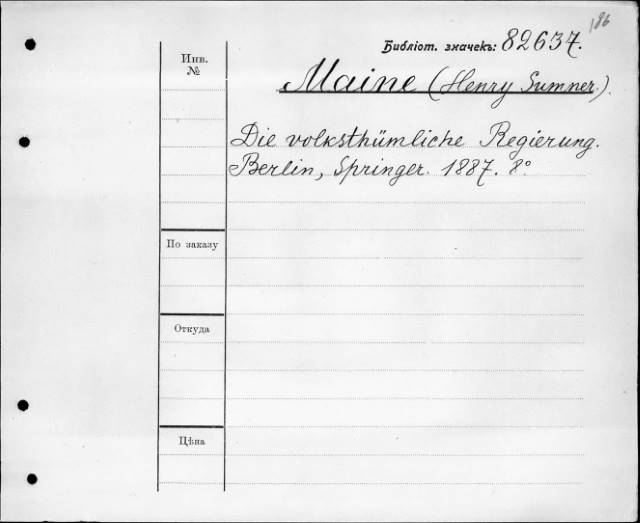 196
Библіот. значекъ: 82637.
Инв.
№
Maine (Henry Sumner.).
Die volksthümliche Regierung.
Berlin, Springer. 1887. 8°
По заказу
Откуда
Цѣна